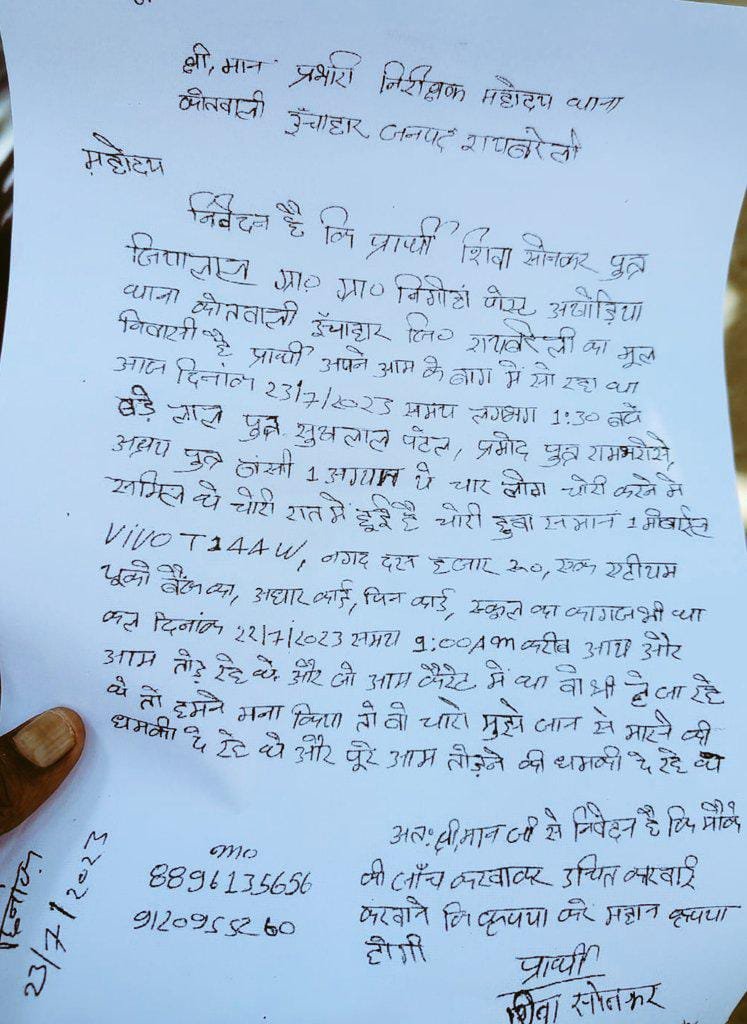 श्री, मान प्रभारी निरीक्षक महोदय थाना
कोतवाली ऊँचाहार जनपद रायबरेली
महोदय
निवेदन है कि प्रार्थी शिवा सोनकर पुत्र
जियालाल ग्रा० ग्रा० पोस्ट
थाना कोतवाली ऊँचाहार जि० रायबरेली का मूल
निवासी है प्रार्थी अपने आम के बाग में सो रहा था
आज दिनांक 23/7/2023 समय लगभग 1:30 बजे
बड़े लाल पुत्र सुखलाल पटेल, प्रमोद पुत्र रामभरोसे,
पुत्र बंसी 1 ये चार लोग चोरी करने में
सामिल थे चोरी रात में हुई है चोरी हुवा समान 1 मोबाईल
VIVO T14AW, नगद दस हजार रू०, एक एटीयम
यूको बैंक का, अधार कार्ड, पिन कार्ड, स्कूल का कागज भी था
कल दिनांक 22/7/2023 समय 9:00AM करीब आय और
आम तोड़ रहे थे और जो आम कैरेट में था वो भी ले जा रहे
थे तो हमने मना किया तो वो चारो मुझे जान से मारने की
धमकी दे रहे थे और पूरे आम तोड़ने की धमकी दे रहे थे
अतः श्री, मान जी से निवेदन है कि मौके
की जाँच करवाकर उचित करवाई
करवाने कि कृपया करे महान कृपया
होगी
प्रार्थी
शिवा सोनकर
mo
8896135656
9120955260
दिनांक
23/7/2023